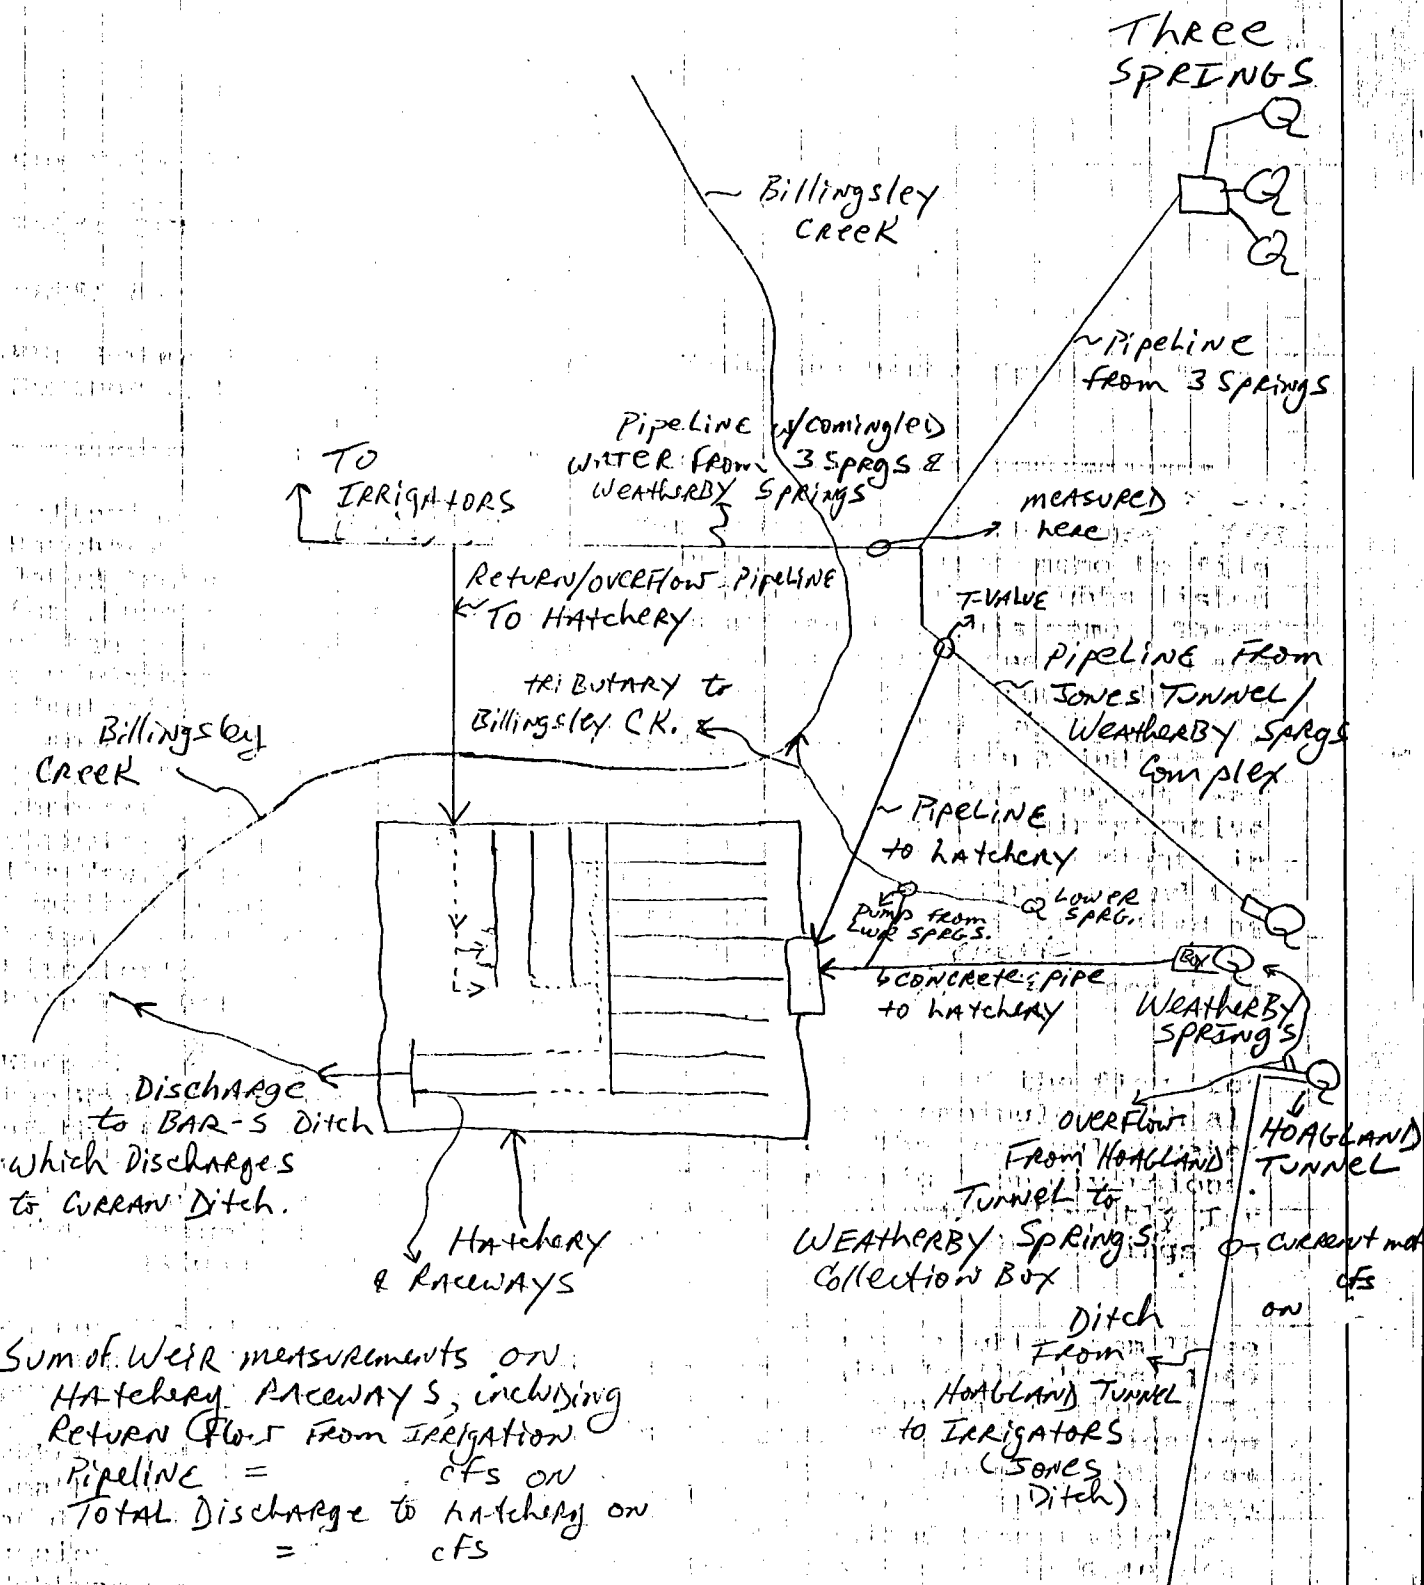 Three
Springs
Billingsley
Creek
~Pipeline
from 3 Springs
Pipeline w/comingled
water from 3 Sprgs &
Weatherby Springs
To
Irrigators
measured
here
Return/overflow Pipeline
To Hatchery
T-Valve
Pipeline From
Jones Tunnel/
Weatherby Sprgs
Complex
tributary to
Billingsley Ck.
Billingsley
Creek
~Pipeline
to hatchery
Lower
Sprg.
Pump from
Lwr Sprgs.
Box
Concrete pipe
to hatchery
Weatherby
Springs
Discharge
to Bar-S Ditch
which Discharges
to Curran Ditch.
Overflow
From Hoagland
Tunnel to
Weatherby Springs
Collection Box
Hoagland
Tunnel
Hatchery
& Raceways
Current met
cfs
on
Ditch
From
Hoagland Tunnel
to Irrigators
(Jones
Ditch)
Sum of Weir measurements on
Hatchery Raceways, including
Return Flows From Irrigation
Pipeline = cfs on
Total Discharge to hatchery on
= cfs